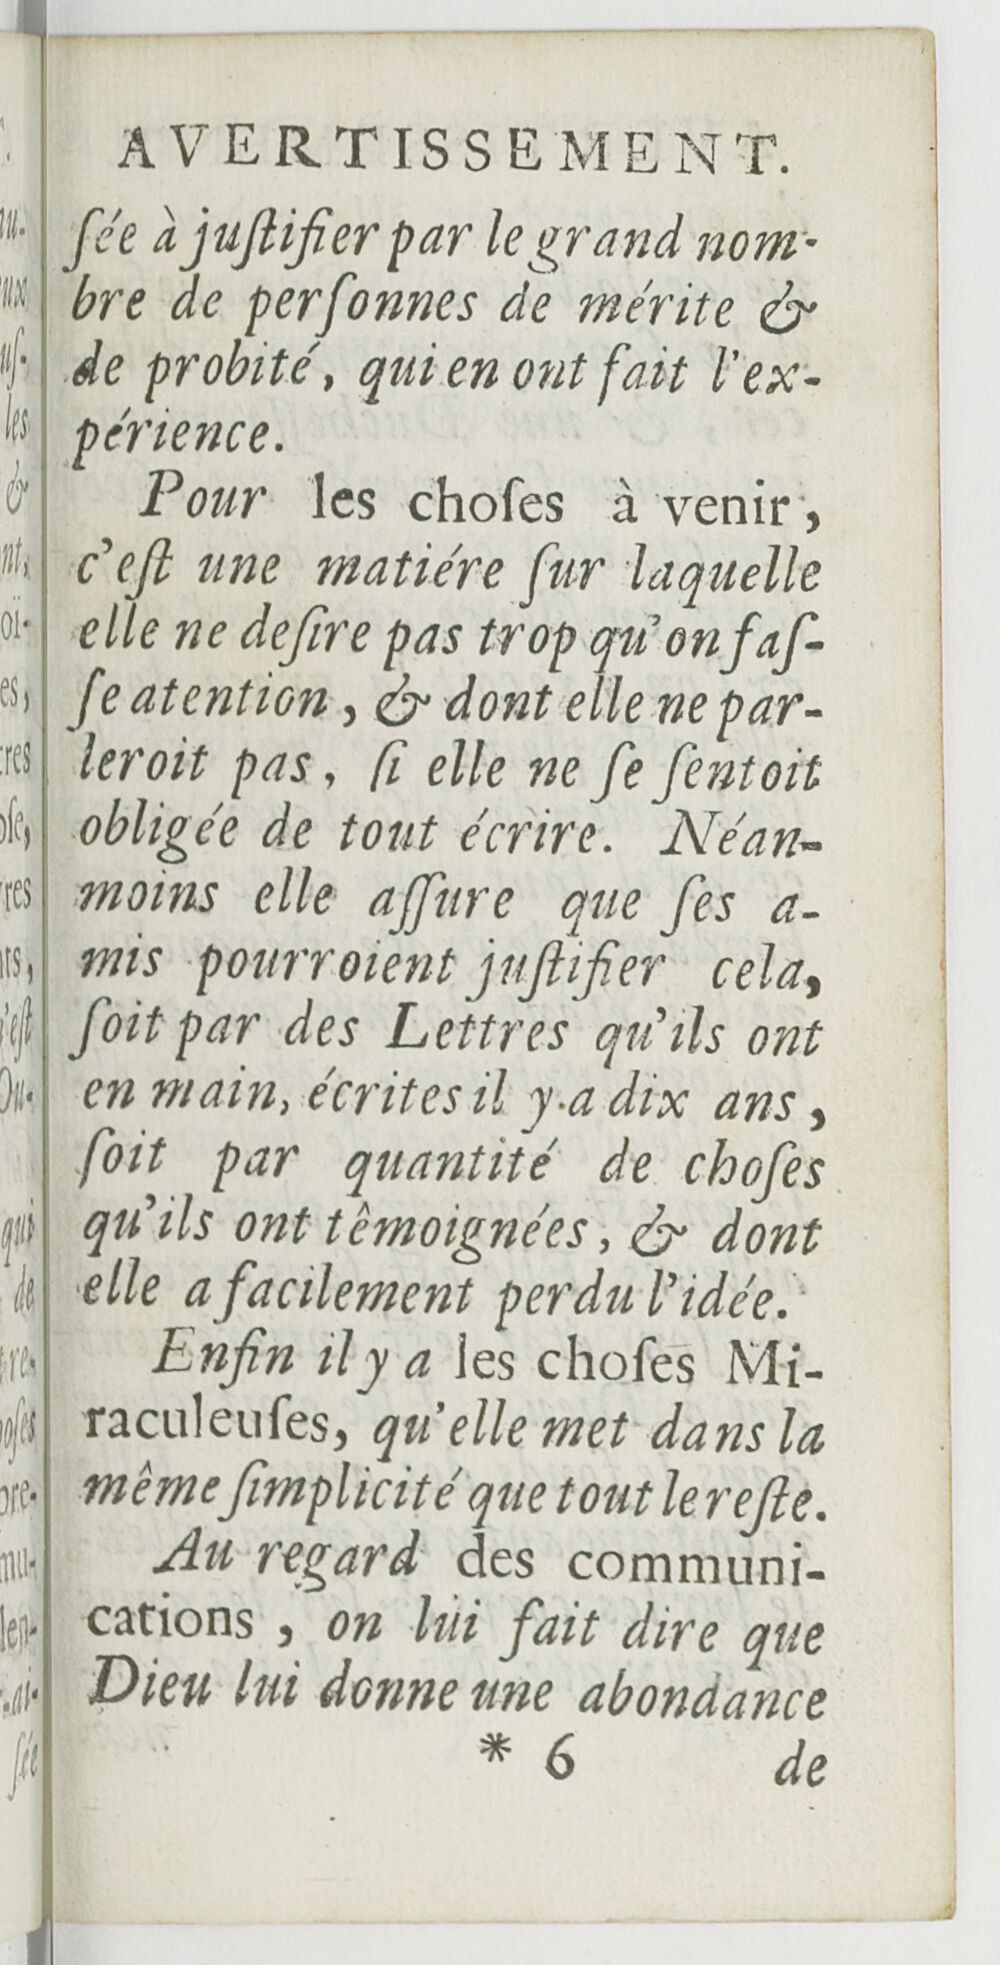 AVERTISSEMENT.
ſée à juſtifier par le grand nom-
bre de perſonnes de mérite &
de probité, qui en ont fait l'ex-
périence.
Pour les choſes à venir,
c'eſt une matiére ſur laquelle
elle ne deſire pas trop qu'on faſ-
ſe atention, & dont elle ne par-
leroit pas, ſi elle ne ſe ſentoit
obligée de tout écrire. Néan-
moins elle aſſure que ſes a-
mis pourroient juſtifier cela,
ſoit par des Lettres qu'ils ont
en main, écrites il y a dix ans,
ſoit par quantité de choſes
qu'ils ont têmoignées, & dont
elle a facilement perdu l'idée.
Enfin il y a les choſes Mi-
raculeuſes, qu'elle met dans la
même ſimplicité que tout le reſte.
Au regard des communi-
cations, on lui fait dire que
Dieu lui donne une abondance
* 6 de